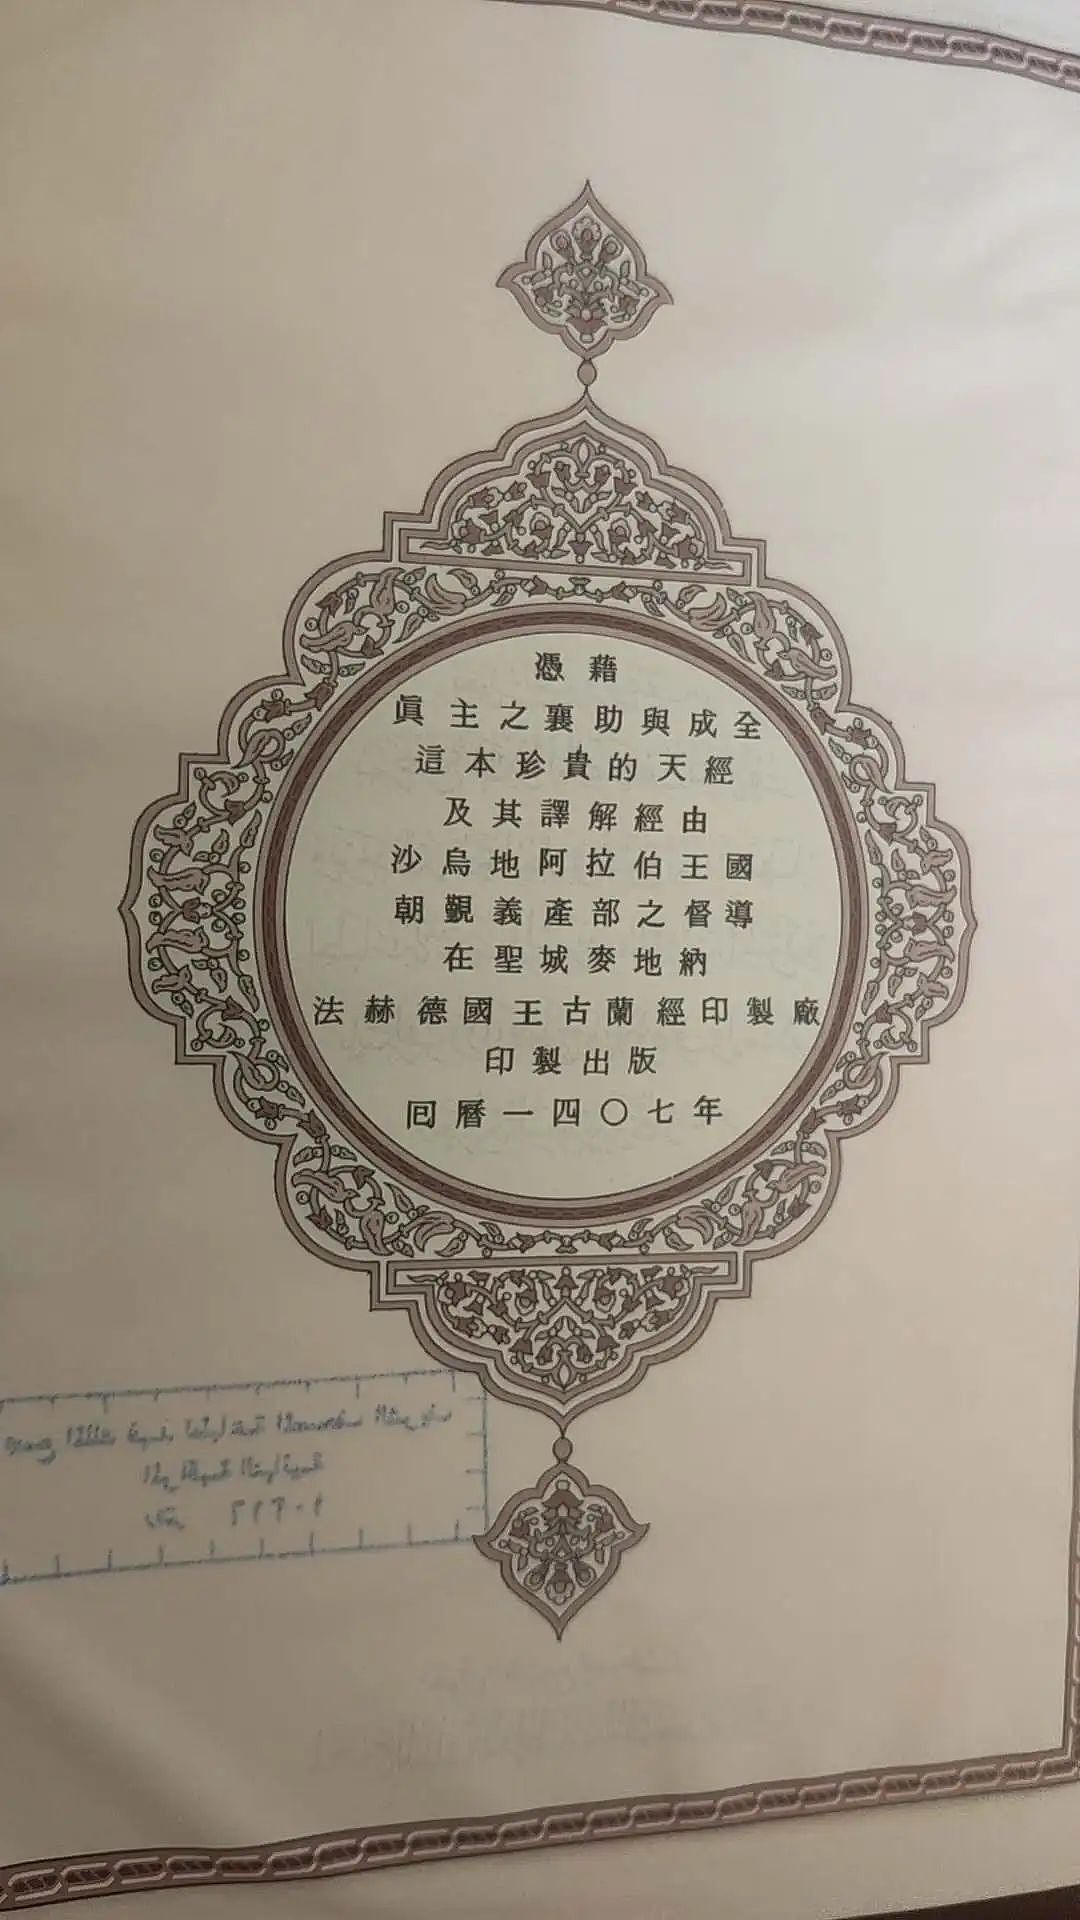 憑藉
眞主之襄助與成全
這本珍貴的天經
及其譯解經由
沙烏地阿拉伯王國
朝覲義產部之督導
在聖城麥地納
法赫德國王古蘭經印製廠
印製出版
囘曆一四〇七年